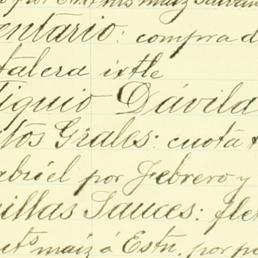 entario: compra d
talera ixtle
tiquio Dávila
tos Grales: cuota
abriel por Febrero y
illas Sauces: fle
maiz á Estn, por